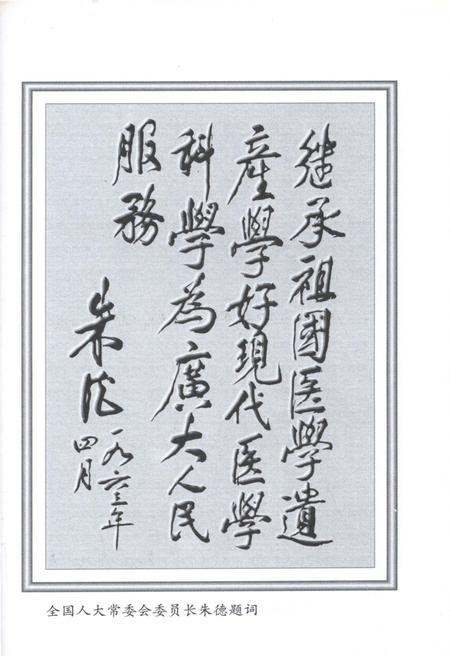 继承祖國医學遺
產學好現代医學
科學為廣大人民
服務
朱德
一九六三年
四月
全国人大常委会委员长朱德题词